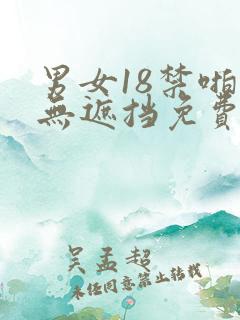 男女18禁啪
無遮挡免費
吴孟超
未任同意禁止转载